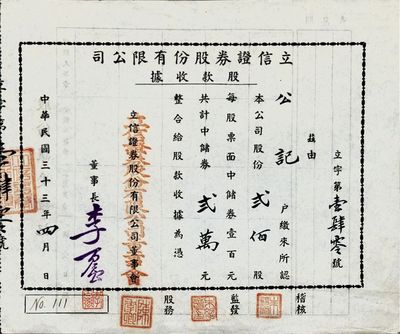 立信證券股份有限公司
股款收據
立字第壹肆零號
茲由
公記 戶繳來所認
本公司股份 貳佰 股
每股票面中儲券壹百元
共計中儲券 貳萬 元
整合給股款收據為憑
立信證券股份有限公司董事會
董事長
中華民國三十三年四月 日
稽核
監發
股務
No. 111
壹肆零號